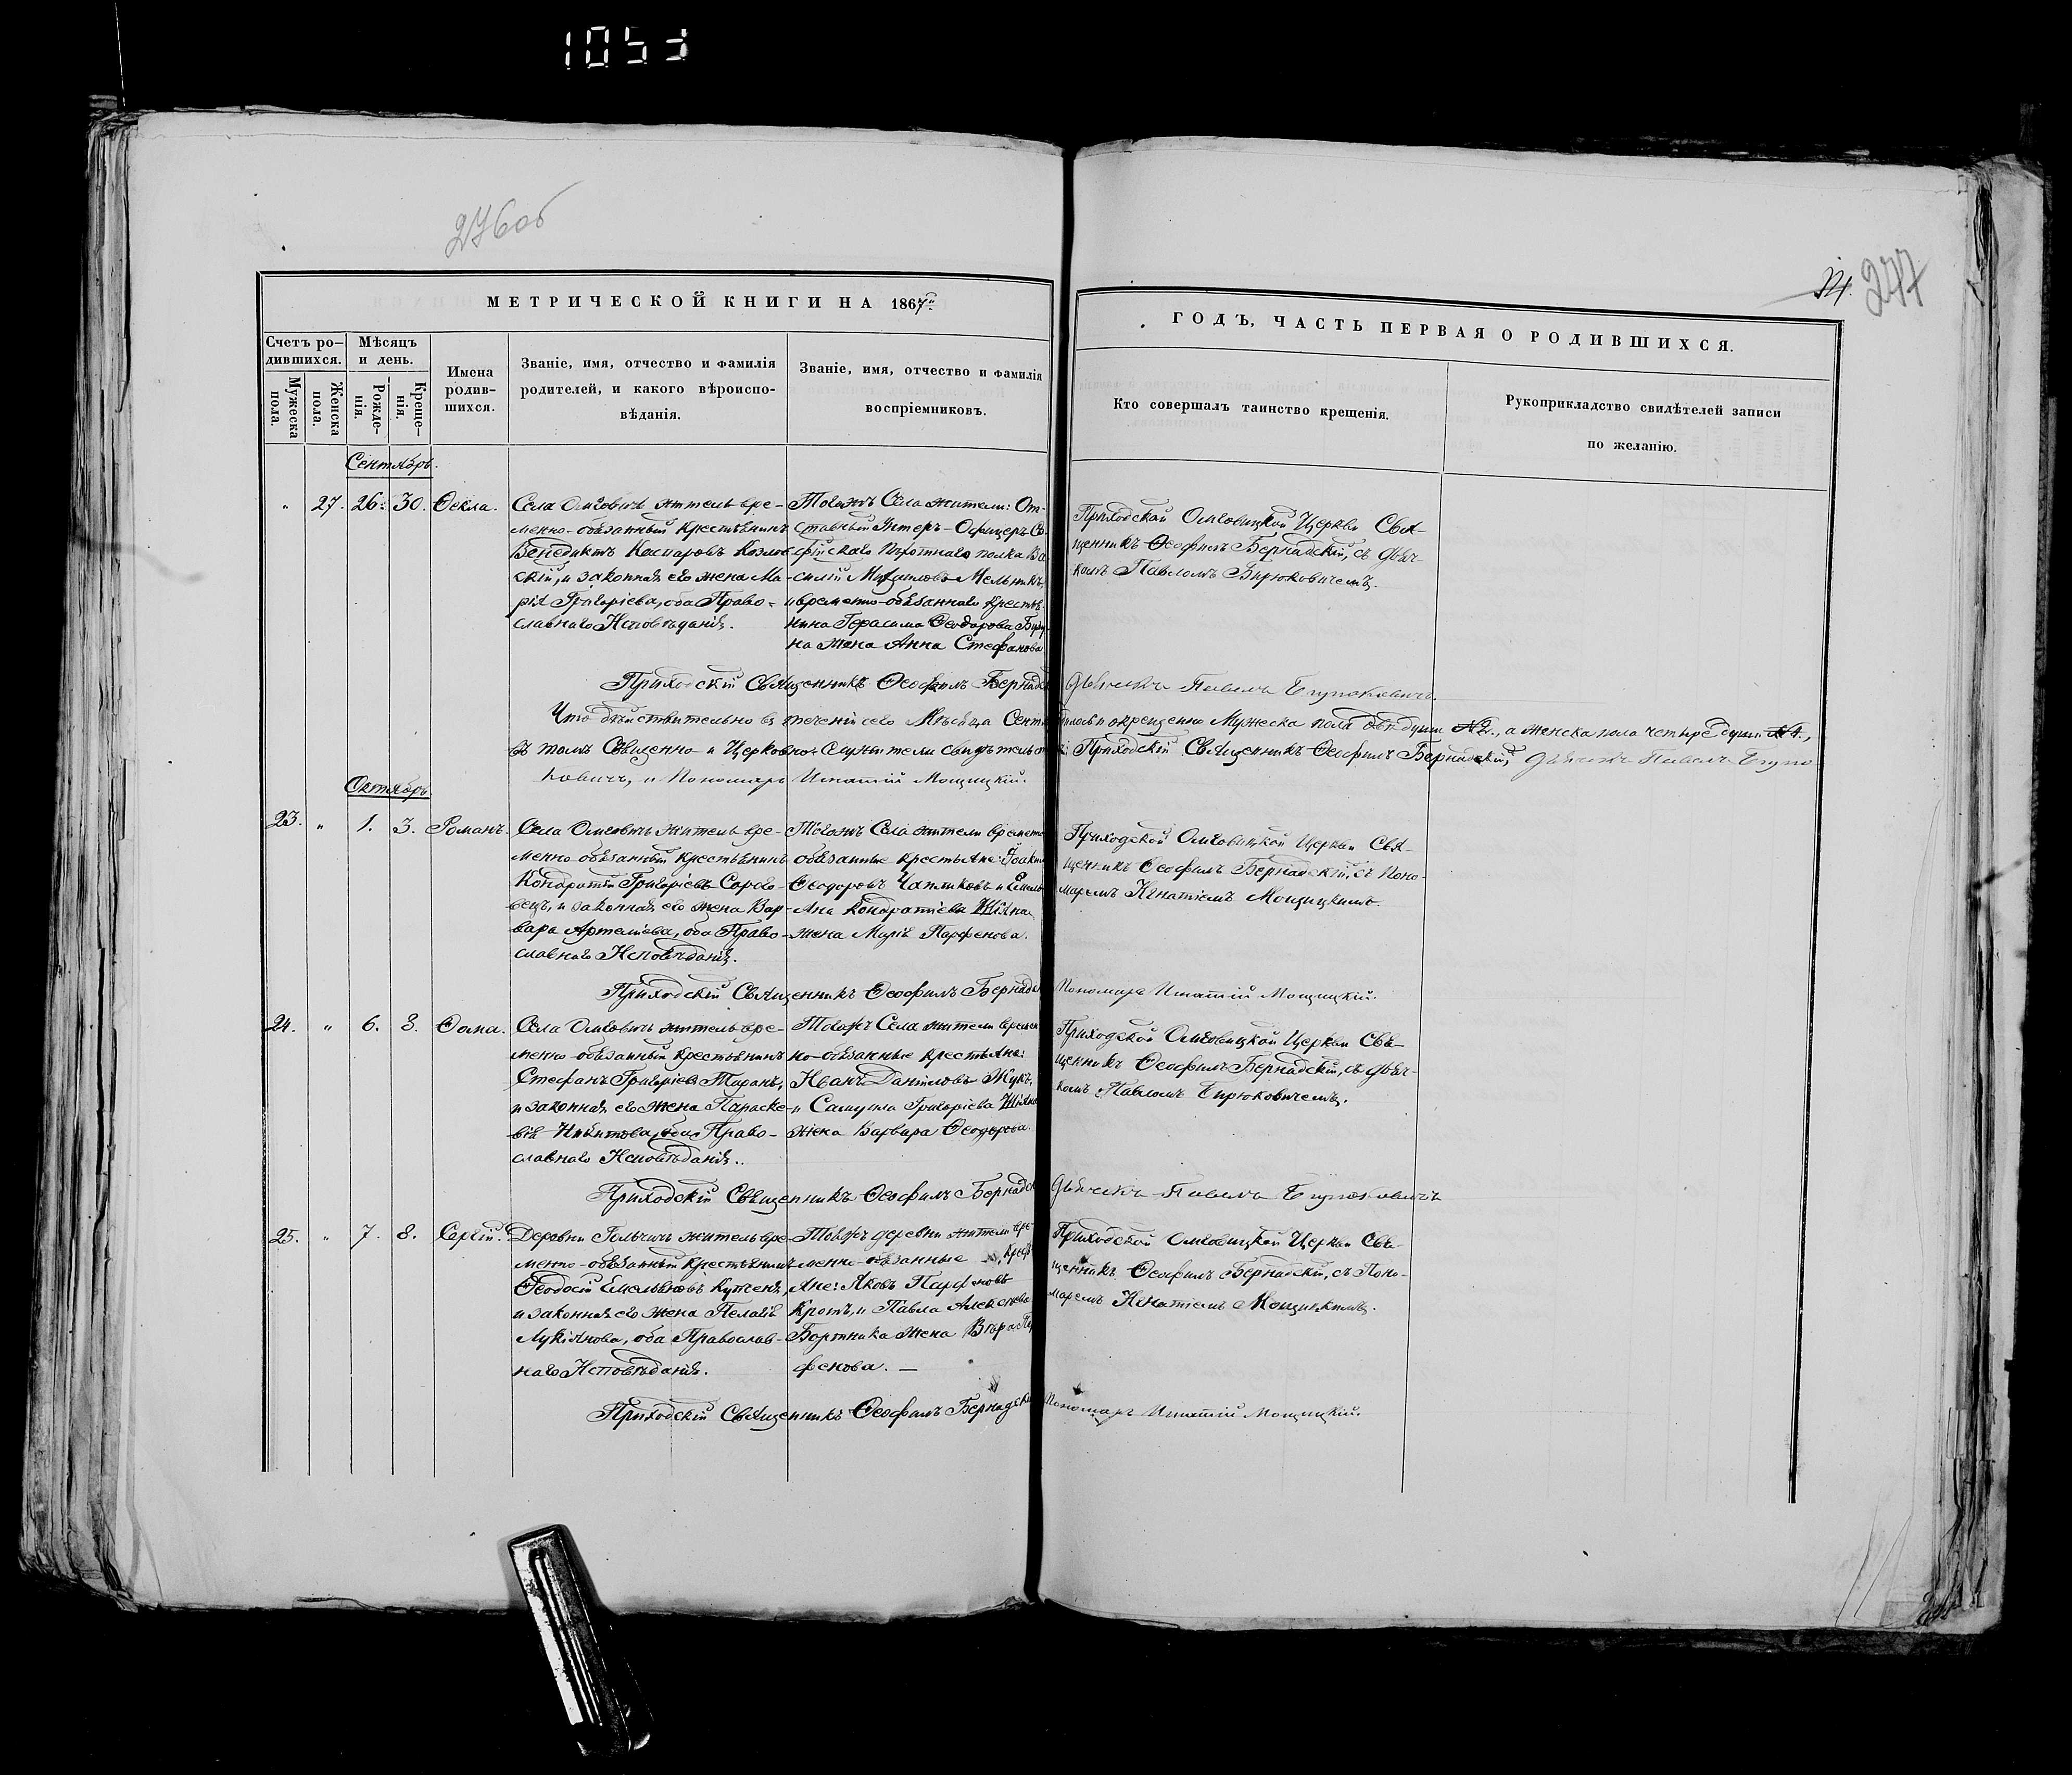 1053
276 об
34.
277
МЕТРИЧЕСКОЙ КНИГИ НА 1867й
ГОДЪ, ЧАСТЬ ПЕРВАЯ О РОДИВШИХСЯ.
Счетъ ро-
дившихся.
Мужеска
пола.
Женска
пола.
Мѣсяцъ
и день.
Рожде-
нія.
Креще-
нія.
Имена
родив-
шихся.
Званіе, имя, отчество и фамилія
родителей, и какого вѣроиспо-
вѣданія.
Званіе, имя, отчество и фамилія
воспріемниковъ.
Кто совершалъ таинство крещенія.
Рукоприкладство свидѣтелей записи
по желанію.
Сентябрь.
" 27. 26. 30. Ѳекла.
Села Омговичъ житель вре-
менно-обязанный крестьянинъ
Венедиктъ Каспаровъ Козлов
скій, и законная его жена Ма-
рія Григоріева, оба Право-
славнаго Исповѣданія.
Тогожъ Села жители: От-
ставный Унтеръ-Офицеръ Со
фійскаго Пѣхотнаго полка Ва
силій Михаиловъ Мельникъ,
и временно-обязаннаго крестья
нина Герасима Ѳеодорова
на жена Анна Стефанова
Приходской Омговицкой Церкви Свя-
щенникъ Ѳеофилъ Бернадскій, съ дьяч-
комъ Павломъ Бирюковичемъ.
Приходскій Священникъ Ѳеофилъ Бернадск
Дьячекъ Павелъ Бирюковичъ
Что дѣйствительно въ теченіи сего Мѣсяца Сент
дилось и окрещенно Мужеска пола двѣ души №2., а женска пола четыре души №4.,
въ томъ Священно- и Церковно-Служители свидѣтельств
Приходскій Священникъ Ѳеофилъ Бернадскій, Дьячекъ Павелъ Бирю
ковичъ, и Пономарь Игнатій Мощицкій.
Октябрь.
23. " 1. 3. Романъ.
Села Омговичъ житель вре-
менно обязанный крестьянинъ
Кондратій Григоріевъ Сорго-
вецъ, и законная его жена Вар-
вара Артеміева, оба Право-
славнаго Исповѣданія.
Тогожъ Села жители временно
обязанные крестьяне: Іоаким
Ѳеодоровъ и Емель
яна Кондратіева
жена Марія Парфенова.
Приходской Омговицкой Церкви Свя-
щенникъ Ѳеофилъ Бернадскій, съ Поно-
маремъ Игнатіемъ Мощицкимъ.
Приходскій Священникъ Ѳеофилъ Бернадск
Пономарь Игнатій Мощицкій.
24. " 6. 8. Ѳома.
Села Омговичъ житель вре-
менно-обязанный крестьянинъ
Стефанъ Григоріевъ Таранъ,
и законная его жена Параске-
вія Никитова, оба Право-
славнаго Исповѣданія.
Тогожъ Села жители времен
но-обязанные крестьяне:
Иванъ Даніиловъ Жукъ,
и Самуила Григоріева
жена Варвара Ѳеодорова.
Приходской Омговицкой Церкви Свя-
щенникъ Ѳеофилъ Бернадскій, съ дьяч-
комъ Павломъ Бирюковичемъ.
Приходскій Священникъ Ѳеофилъ Бернадск
Дьячекъ Павелъ Бирюковичъ
25. " 7. 8. Сергій.
Деревни Гольчичъ житель вре-
менно-обязанный крестьянинъ
Ѳеодосій Емельяновъ Кутченя,
и законная его жена Пелагія
Лукіянова, оба Православ-
наго Исповѣданія.
Тойже деревни жители вре-
менно-обязанные крестья
яне: Яковъ Парфеновъ
Кротъ, и Павла Алексѣева
Бортника жена Вѣра Пар
фенова. —
Приходской Омговицкой Церкви Свя-
щенникъ Ѳеофилъ Бернадскій, съ Поно-
маремъ Игнатіемъ Мощицкимъ.
Приходскій Священникъ Ѳеофилъ Бернадскій
Пономарь Игнатій Мощицкій.